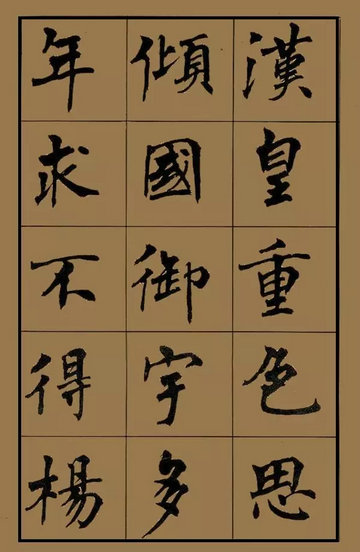 漢皇重色思
傾國御宇多
年求不得楊